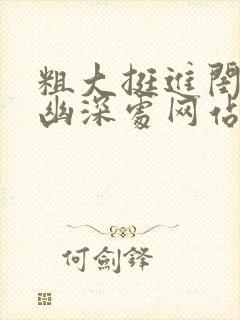 粗大挺进闺
幽深处网站
何劍鋒